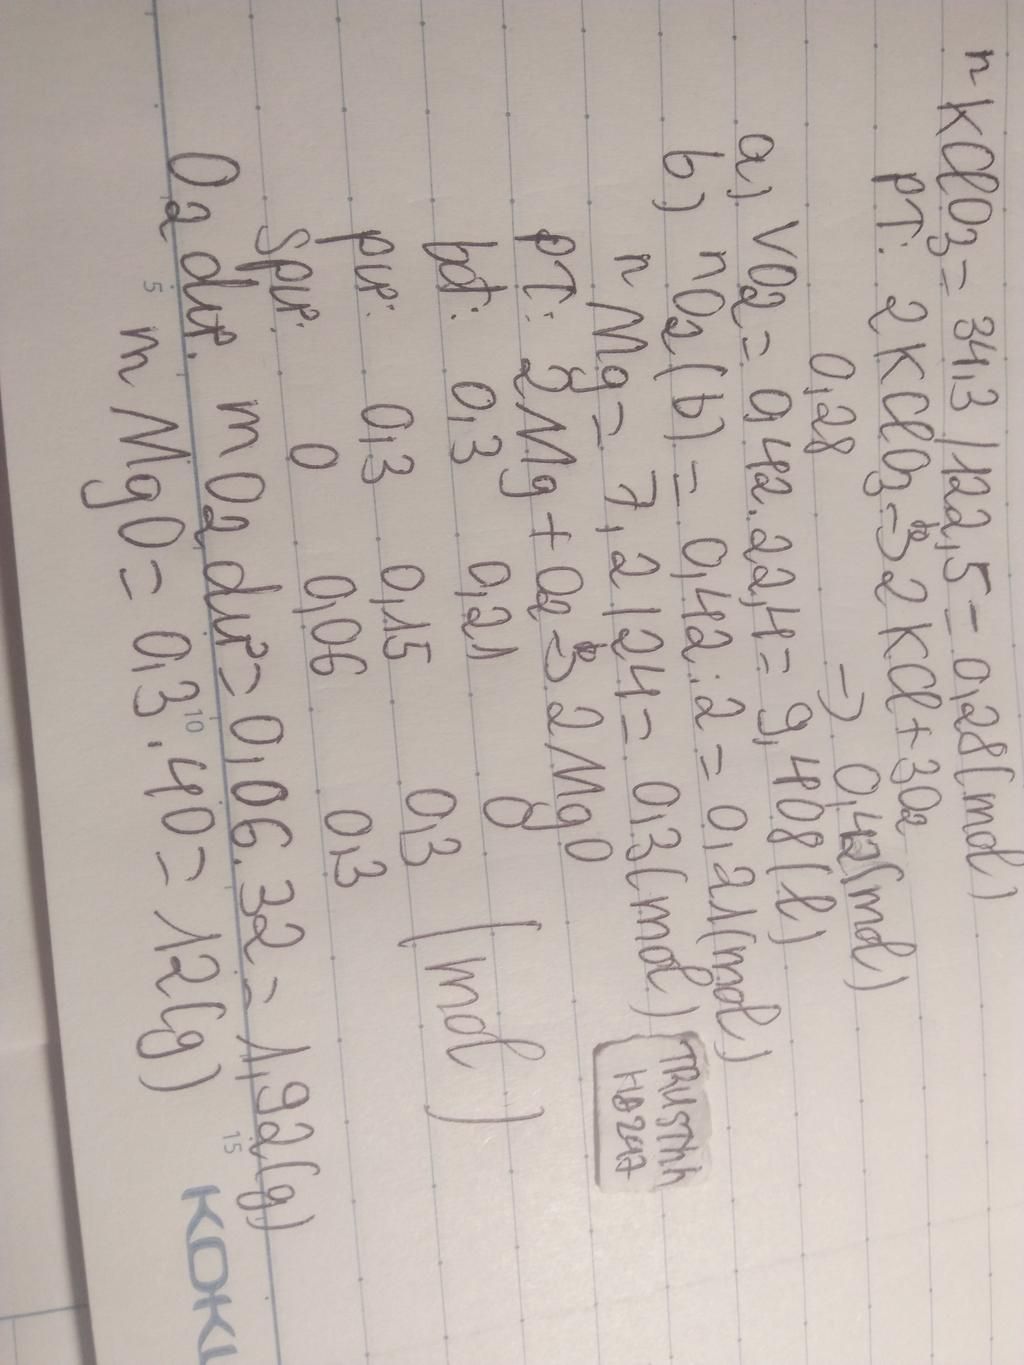 nKClO3 = 34,3/122,5 = 0,28(mol)
PT: 2KClO3 -to> 2KCl + 3O2
0,28 => 0,42(mol)
a) VO2 = 0,42.22,4 = 9,408(l)
b) nO2(b) = 0,42:2 = 0,21(mol)
nMg = 7,2/24 = 0,3(mol)
PT: 2Mg + O2 -to> 2MgO
bđ: 0,3 0,21 0
pư: 0,3 0,15 0,3 (mol)
Spư: 0 0,06 0,3
O2 dư. mO2 dư = 0,06.32 = 1,92(g)
mMgO = 0,3.40 = 12(g)
TRUSTNh
5 10 15